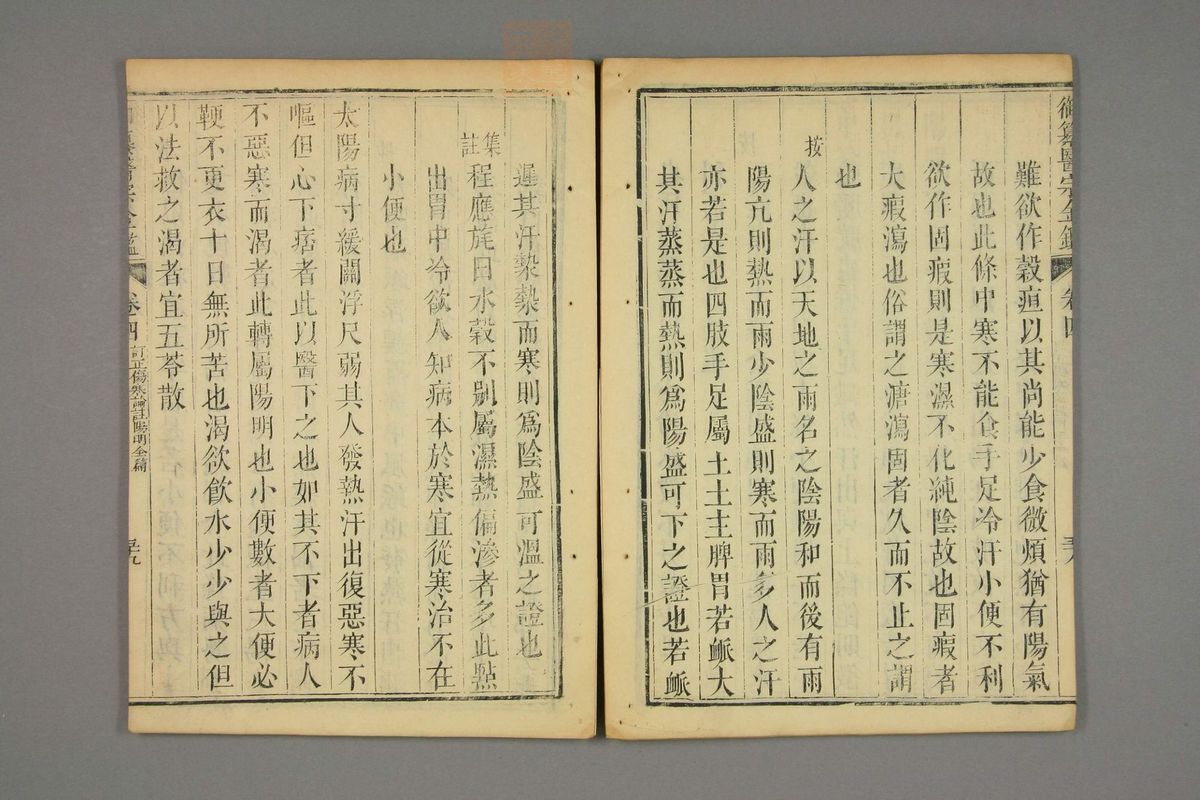 御纂醫宗金鑑 卷四
難欲作穀疸以其尚能少食微煩猶有陽氣
故也此條中寒不能食手足冷汗小便不利
欲作固瘕則是寒濕不化純陰故也固瘕者
大瘕瀉也俗謂之溏瀉固者久而不止之謂
也
按人之汗以天地之雨名之陰陽和而後有雨
陽亢則熱而雨少陰盛則寒而雨多人之汗
亦若是也四肢手足屬土土主脾胃若脈大
其汗蒸蒸而熱則爲陽盛可下之證也若脈
遲其汗漐漐而寒則爲陰盛可溫之證也
集註程應旄曰水穀不别屬濕熱偏滲者多此點
出胃中冷欲人知病本於寒宜從寒治不在
小便也
太陽病寸緩關浮尺弱其人發熱汗出復惡寒不
嘔但心下痞者此以醫下之也如其不下者病人
不惡寒而渴者此轉屬陽明也小便數者大便必
鞕不更衣十日無所苦也渴欲飮水少少與之但
以法救之渴者宜五苓散
醫宗金鑑 卷四 訂正傷寒論註陽明全篇